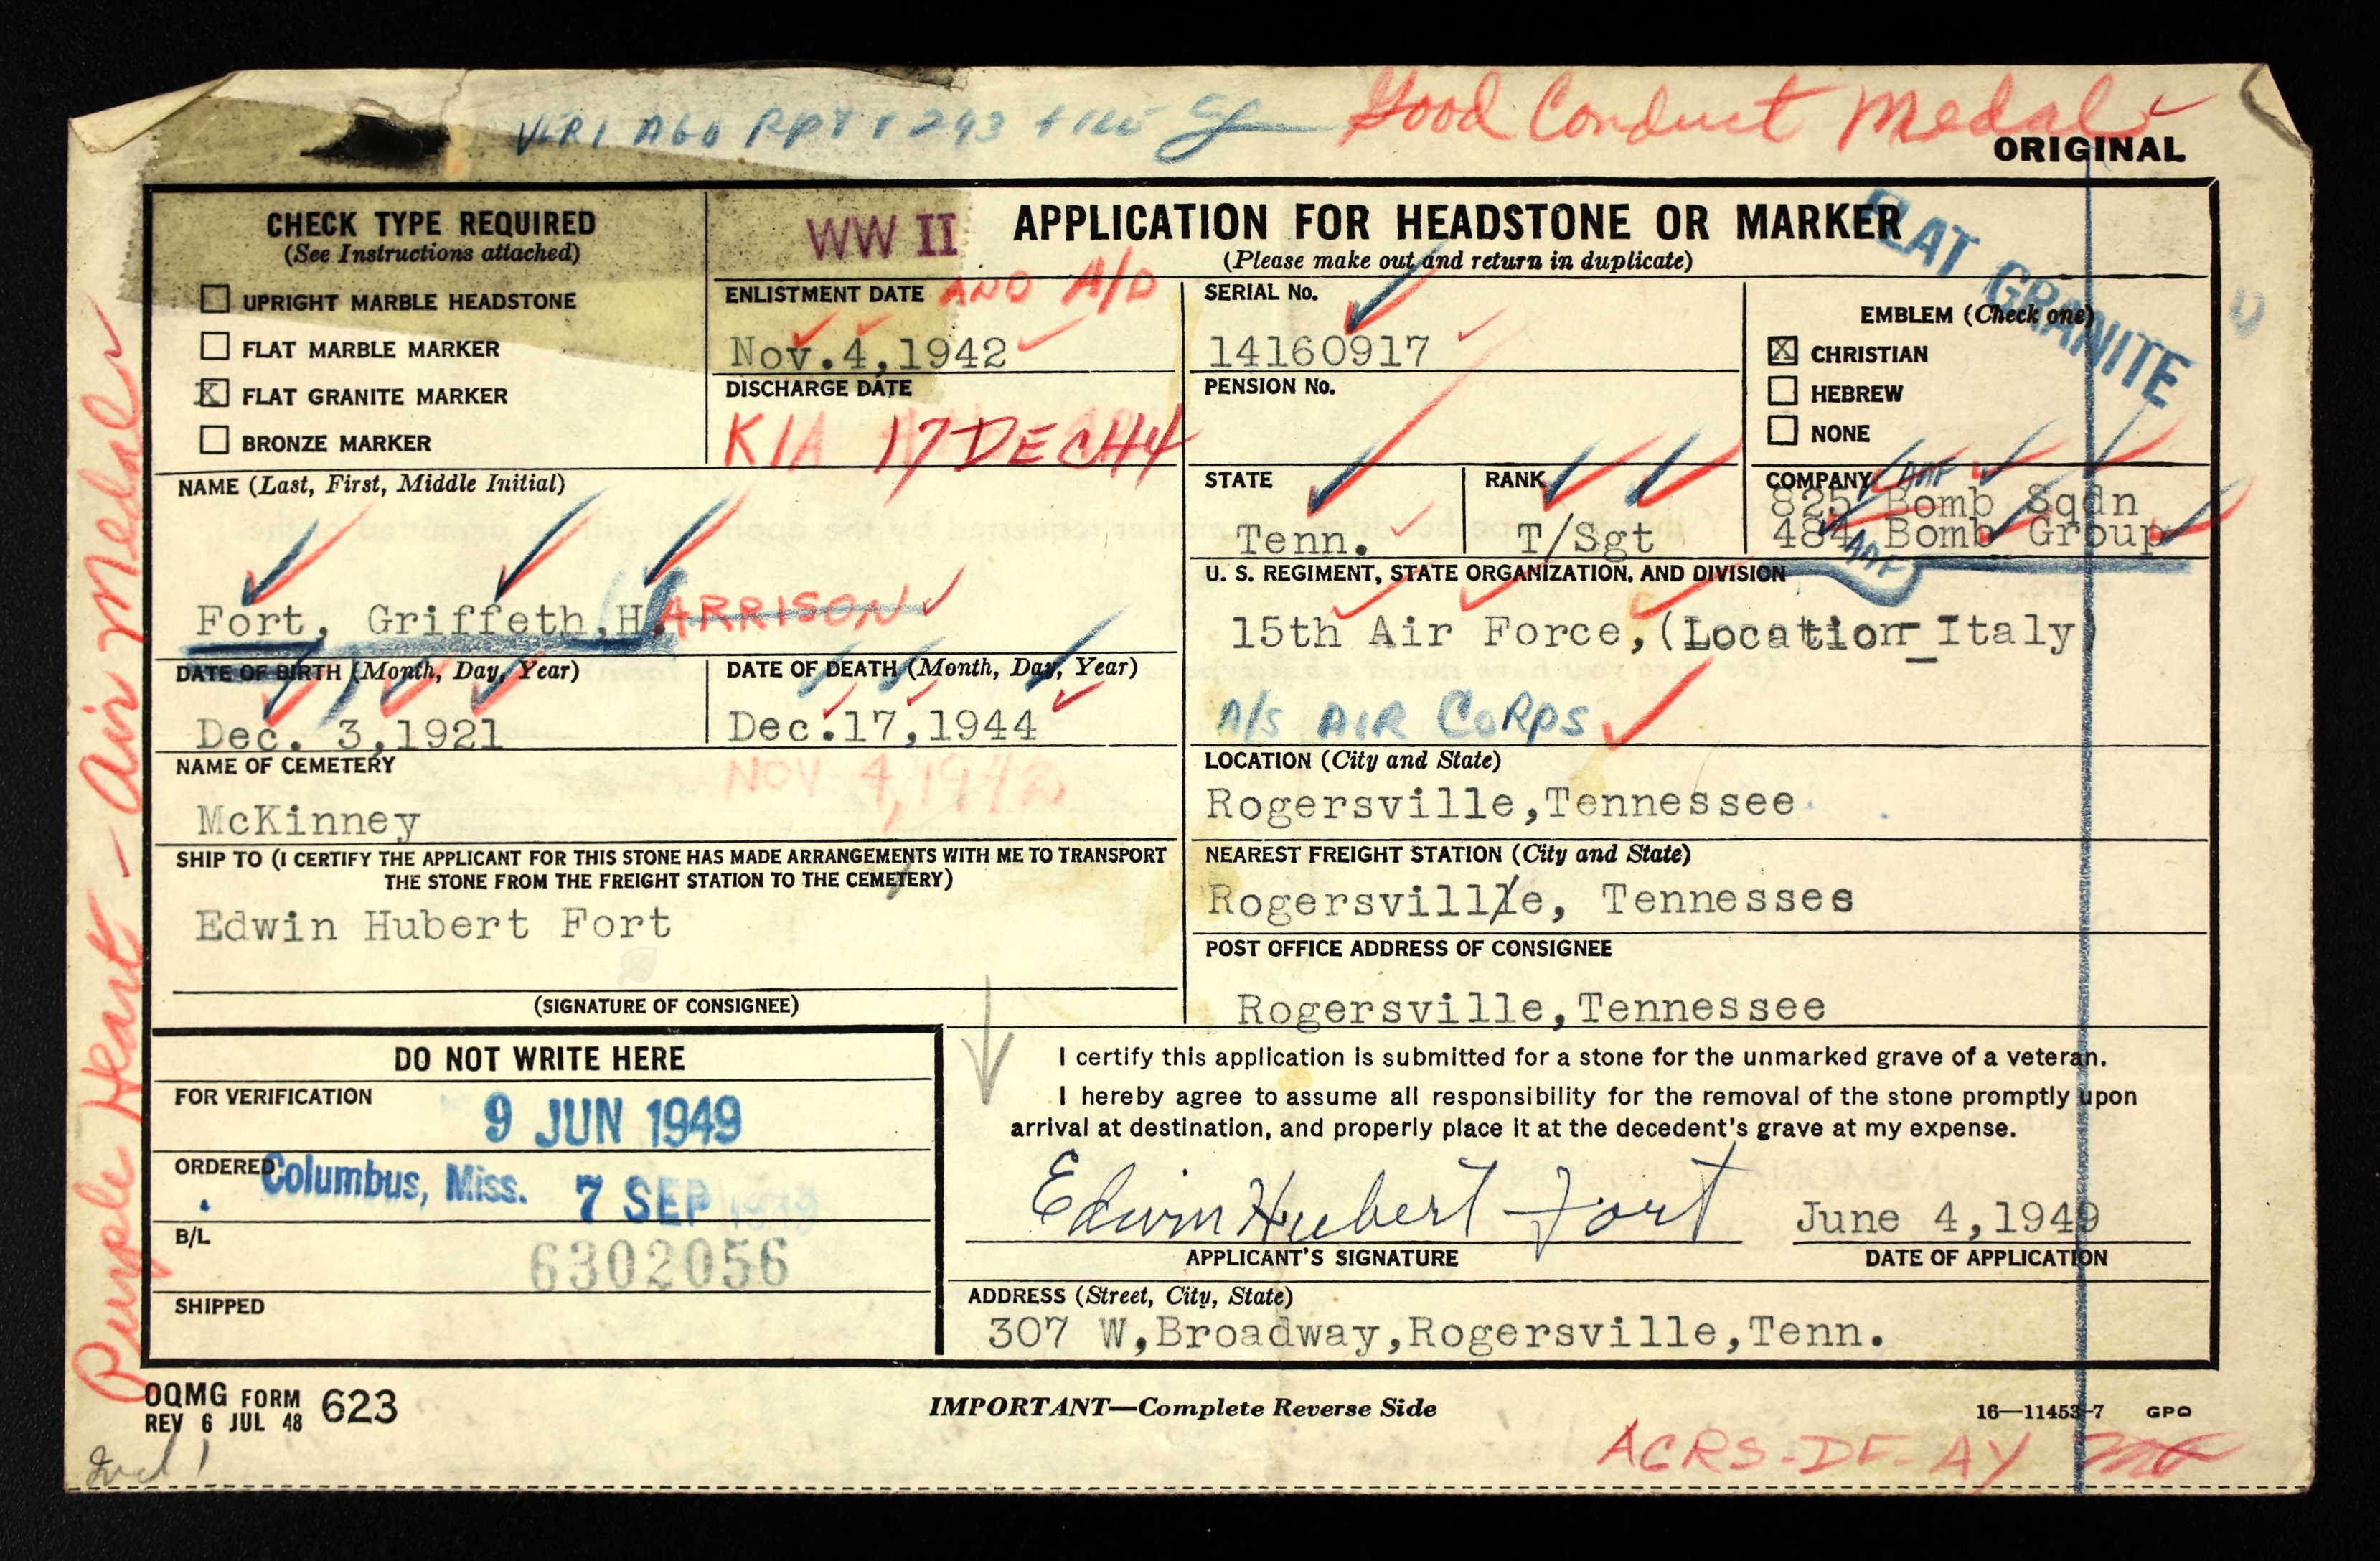 Good Conduct Medal
ORIGINAL
CHECK TYPE REQUIRED
(See Instructions attached)
UPRIGHT MARBLE HEADSTONE
FLAT MARBLE MARKER
X FLAT GRANITE MARKER
BRONZE MARKER
WW II
APPLICATION FOR HEADSTONE OR MARKER
(Please make out and return in duplicate)
FLAT GRANITE
ENLISTMENT DATE AND A/D
Nov.4,1942
DISCHARGE DATE
KIA 17 DEC 44
SERIAL No.
14160917
PENSION No.
EMBLEM (Check one)
X CHRISTIAN
HEBREW
NONE
NAME (Last, First, Middle Initial)
Fort, Griffeth,H.ARRISON
STATE
Tenn.
RANK
T/Sgt
COMPANY AAF
825 Bomb Sqdn
484 Bomb Group
AAF
U. S. REGIMENT, STATE ORGANIZATION, AND DIVISION
15th Air Force,(Location_Italy)
A/S AIR CORPS
DATE OF BIRTH (Month, Day, Year)
Dec. 3,1921
DATE OF DEATH (Month, Day, Year)
Dec.17,1944
NOV 4,1942
NAME OF CEMETERY
McKinney
LOCATION (City and State)
Rogersville,Tennessee
SHIP TO (I CERTIFY THE APPLICANT FOR THIS STONE HAS MADE ARRANGEMENTS WITH ME TO TRANSPORT
THE STONE FROM THE FREIGHT STATION TO THE CEMETERY)
Edwin Hubert Fort
(SIGNATURE OF CONSIGNEE)
NEAREST FREIGHT STATION (City and State)
Rogersvillle, Tennessee
POST OFFICE ADDRESS OF CONSIGNEE
Rogersville,Tennessee
DO NOT WRITE HERE
FOR VERIFICATION
9 JUN 1949
ORDERED
Columbus, Miss. 7 SEP 1949
B/L
6302056
SHIPPED
I certify this application is submitted for a stone for the unmarked grave of a veteran.
I hereby agree to assume all responsibility for the removal of the stone promptly upon
arrival at destination, and properly place it at the decedent's grave at my expense.
Edwin Hubert Fort
APPLICANT'S SIGNATURE
June 4,1949
DATE OF APPLICATION
ADDRESS (Street, City, State)
307 W,Broadway,Rogersville,Tenn.
Purple Heart - Air Medal
OQMG FORM 623
REV 6 JUL 48
IMPORTANT—Complete Reverse Side
16—11453-7 GPO
ACRS-DF-AY